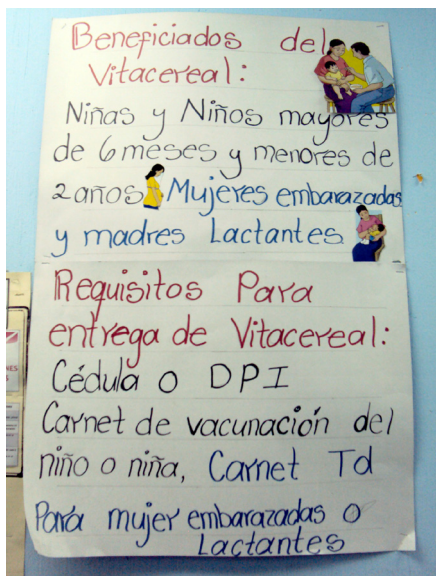 Beneficiados del
Vitacereal:
Niñas y Niños mayores
de 6 meses y menores de
2 años Mujeres embarazadas
y madres Lactantes
Requisitos Para
entrega de Vitacereal:
Cédula o DPI
Carnet de vacunación del
niño o niña, Carnet Td
Para mujer embarazadas o
Lactantes